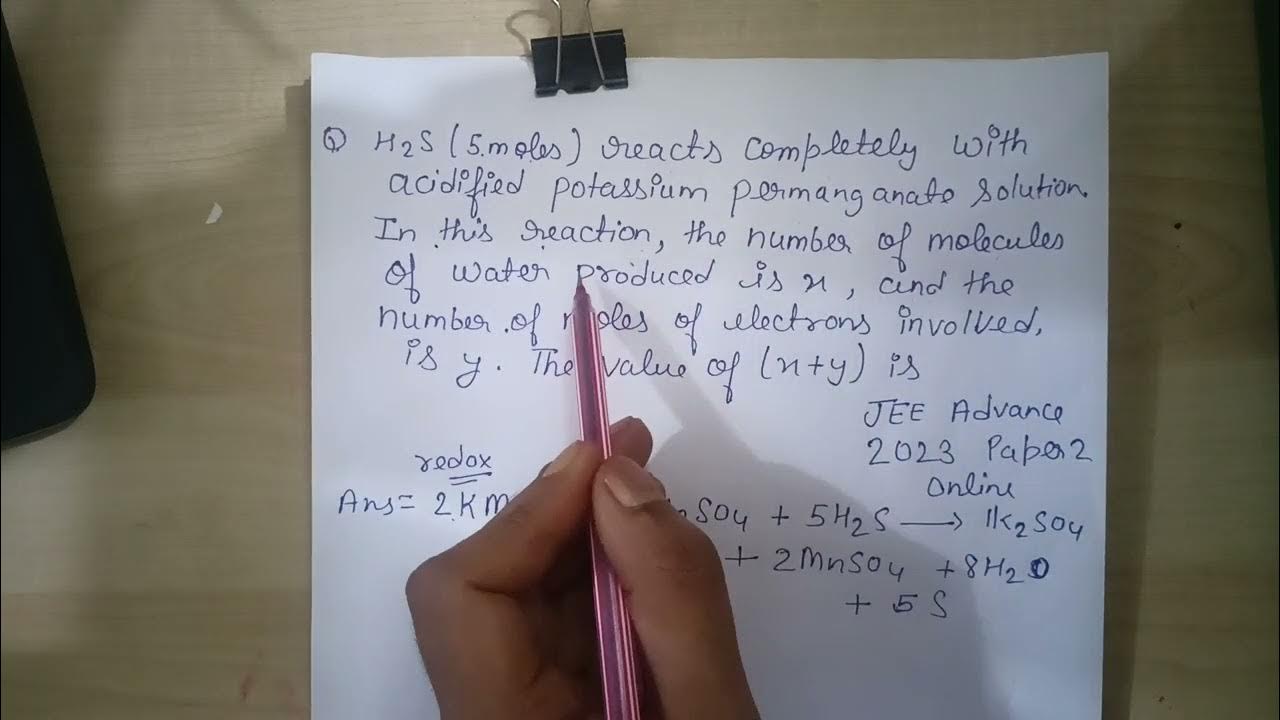 Q H2S (5.moles) reacts completely with
acidified potassium permanganate solution.
In this reaction, the number of molecules
of water produced is x, and the
number of moles of electrons involved,
is y. The value of (x+y) is
JEE Advance
2023 Paper 2
Online
redox
Ans= 2KM SO4 + 5H2S → 1K2SO4
+ 2MnSO4 + 8H2O
+ 5 S